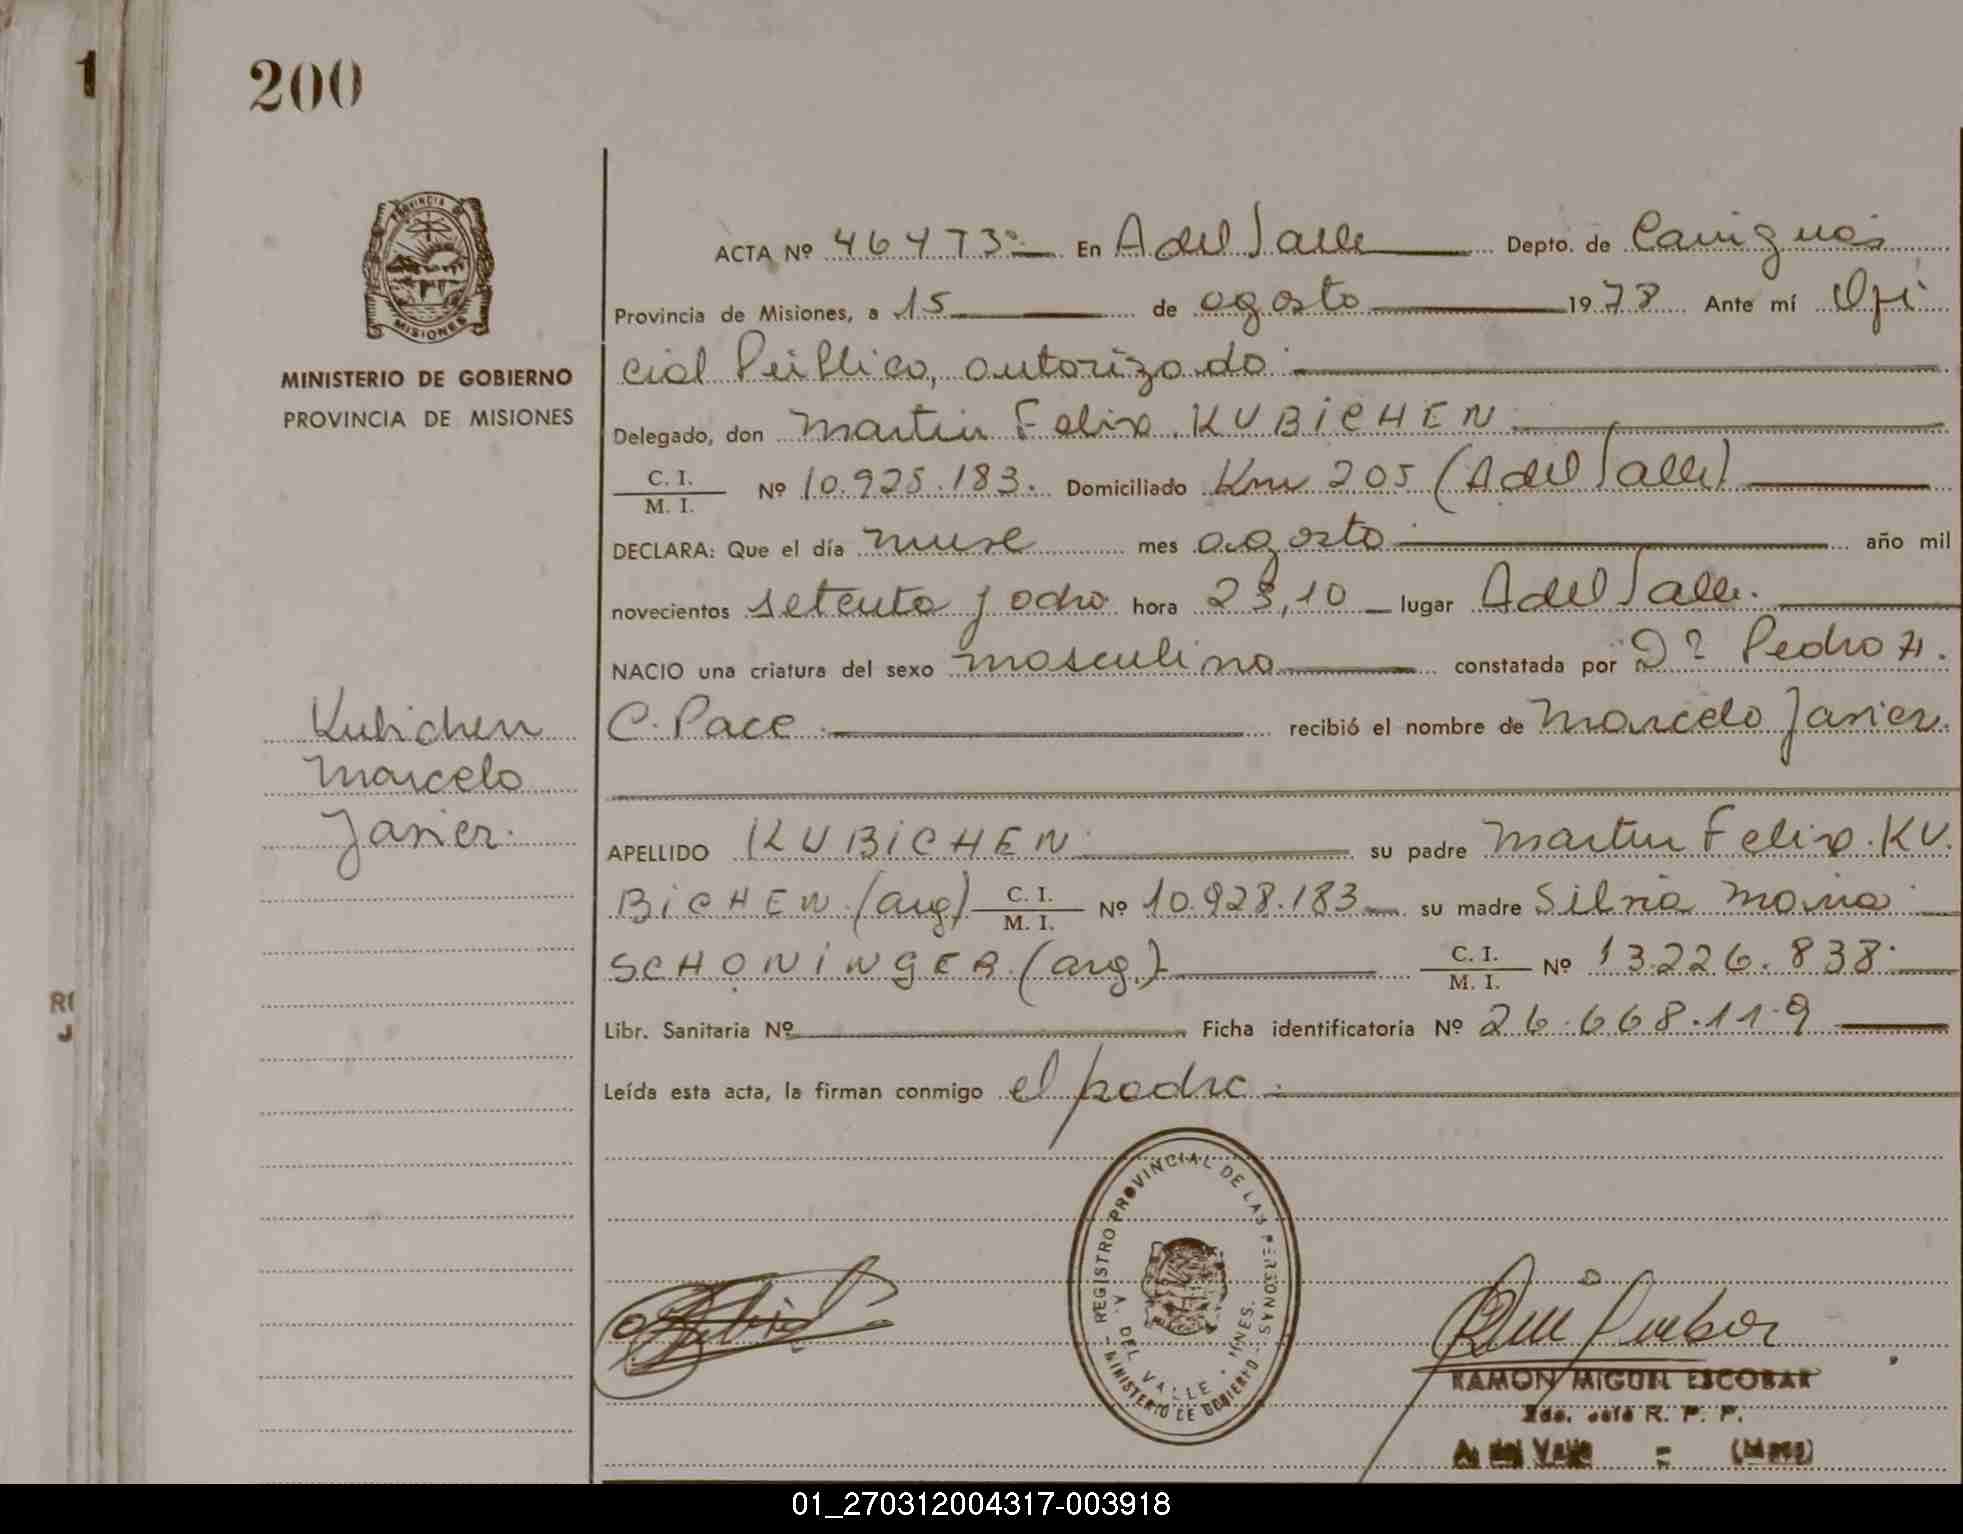 1
200
PROVINCIA DE
MISIONES
MINISTERIO DE GOBIERNO
PROVINCIA DE MISIONES
ACTA Nº 46473 En A del Valle Depto. de Cainguás
Provincia de Misiones, a 15 de agosto 1978 Ante mí Ofi
cial Público, autorizado
Delegado, don Martin Felix KUBiCHEN
C. I.
M. I. Nº 10.925.183. Domiciliado Km 205 (A del Valle)
DECLARA: Que el día nueve mes agosto año mil
novecientos setenta y ocho hora 23,10 lugar A del Valle.
NACIO una criatura del sexo masculino constatada por Dr Pedro H.
C. Pace recibió el nombre de Marcelo Javier.
Kubichen
Marcelo
Javier.
APELLIDO KUBiCHEN su padre Martin Felix KU.
BiCHEN (arg) C. I.
M. I. Nº 10.928.183 su madre Silvia Maria
SCHONiNGER (arg.) C. I.
M. I. Nº 13.226.838
Libr. Sanitaria Nº Ficha identificatoria Nº 26.668.119
RO
J
Leída esta acta, la firman conmigo el padre
REGISTRO PROVINCIAL DE LAS PERSONAS
A. DEL VALLE - MNES.
MINISTERIO DE GOBIERNO
RAMON MIGUEL ESCOBAR
R. P. P.
A. del Valle = (Mnes)
01_270312004317-003918